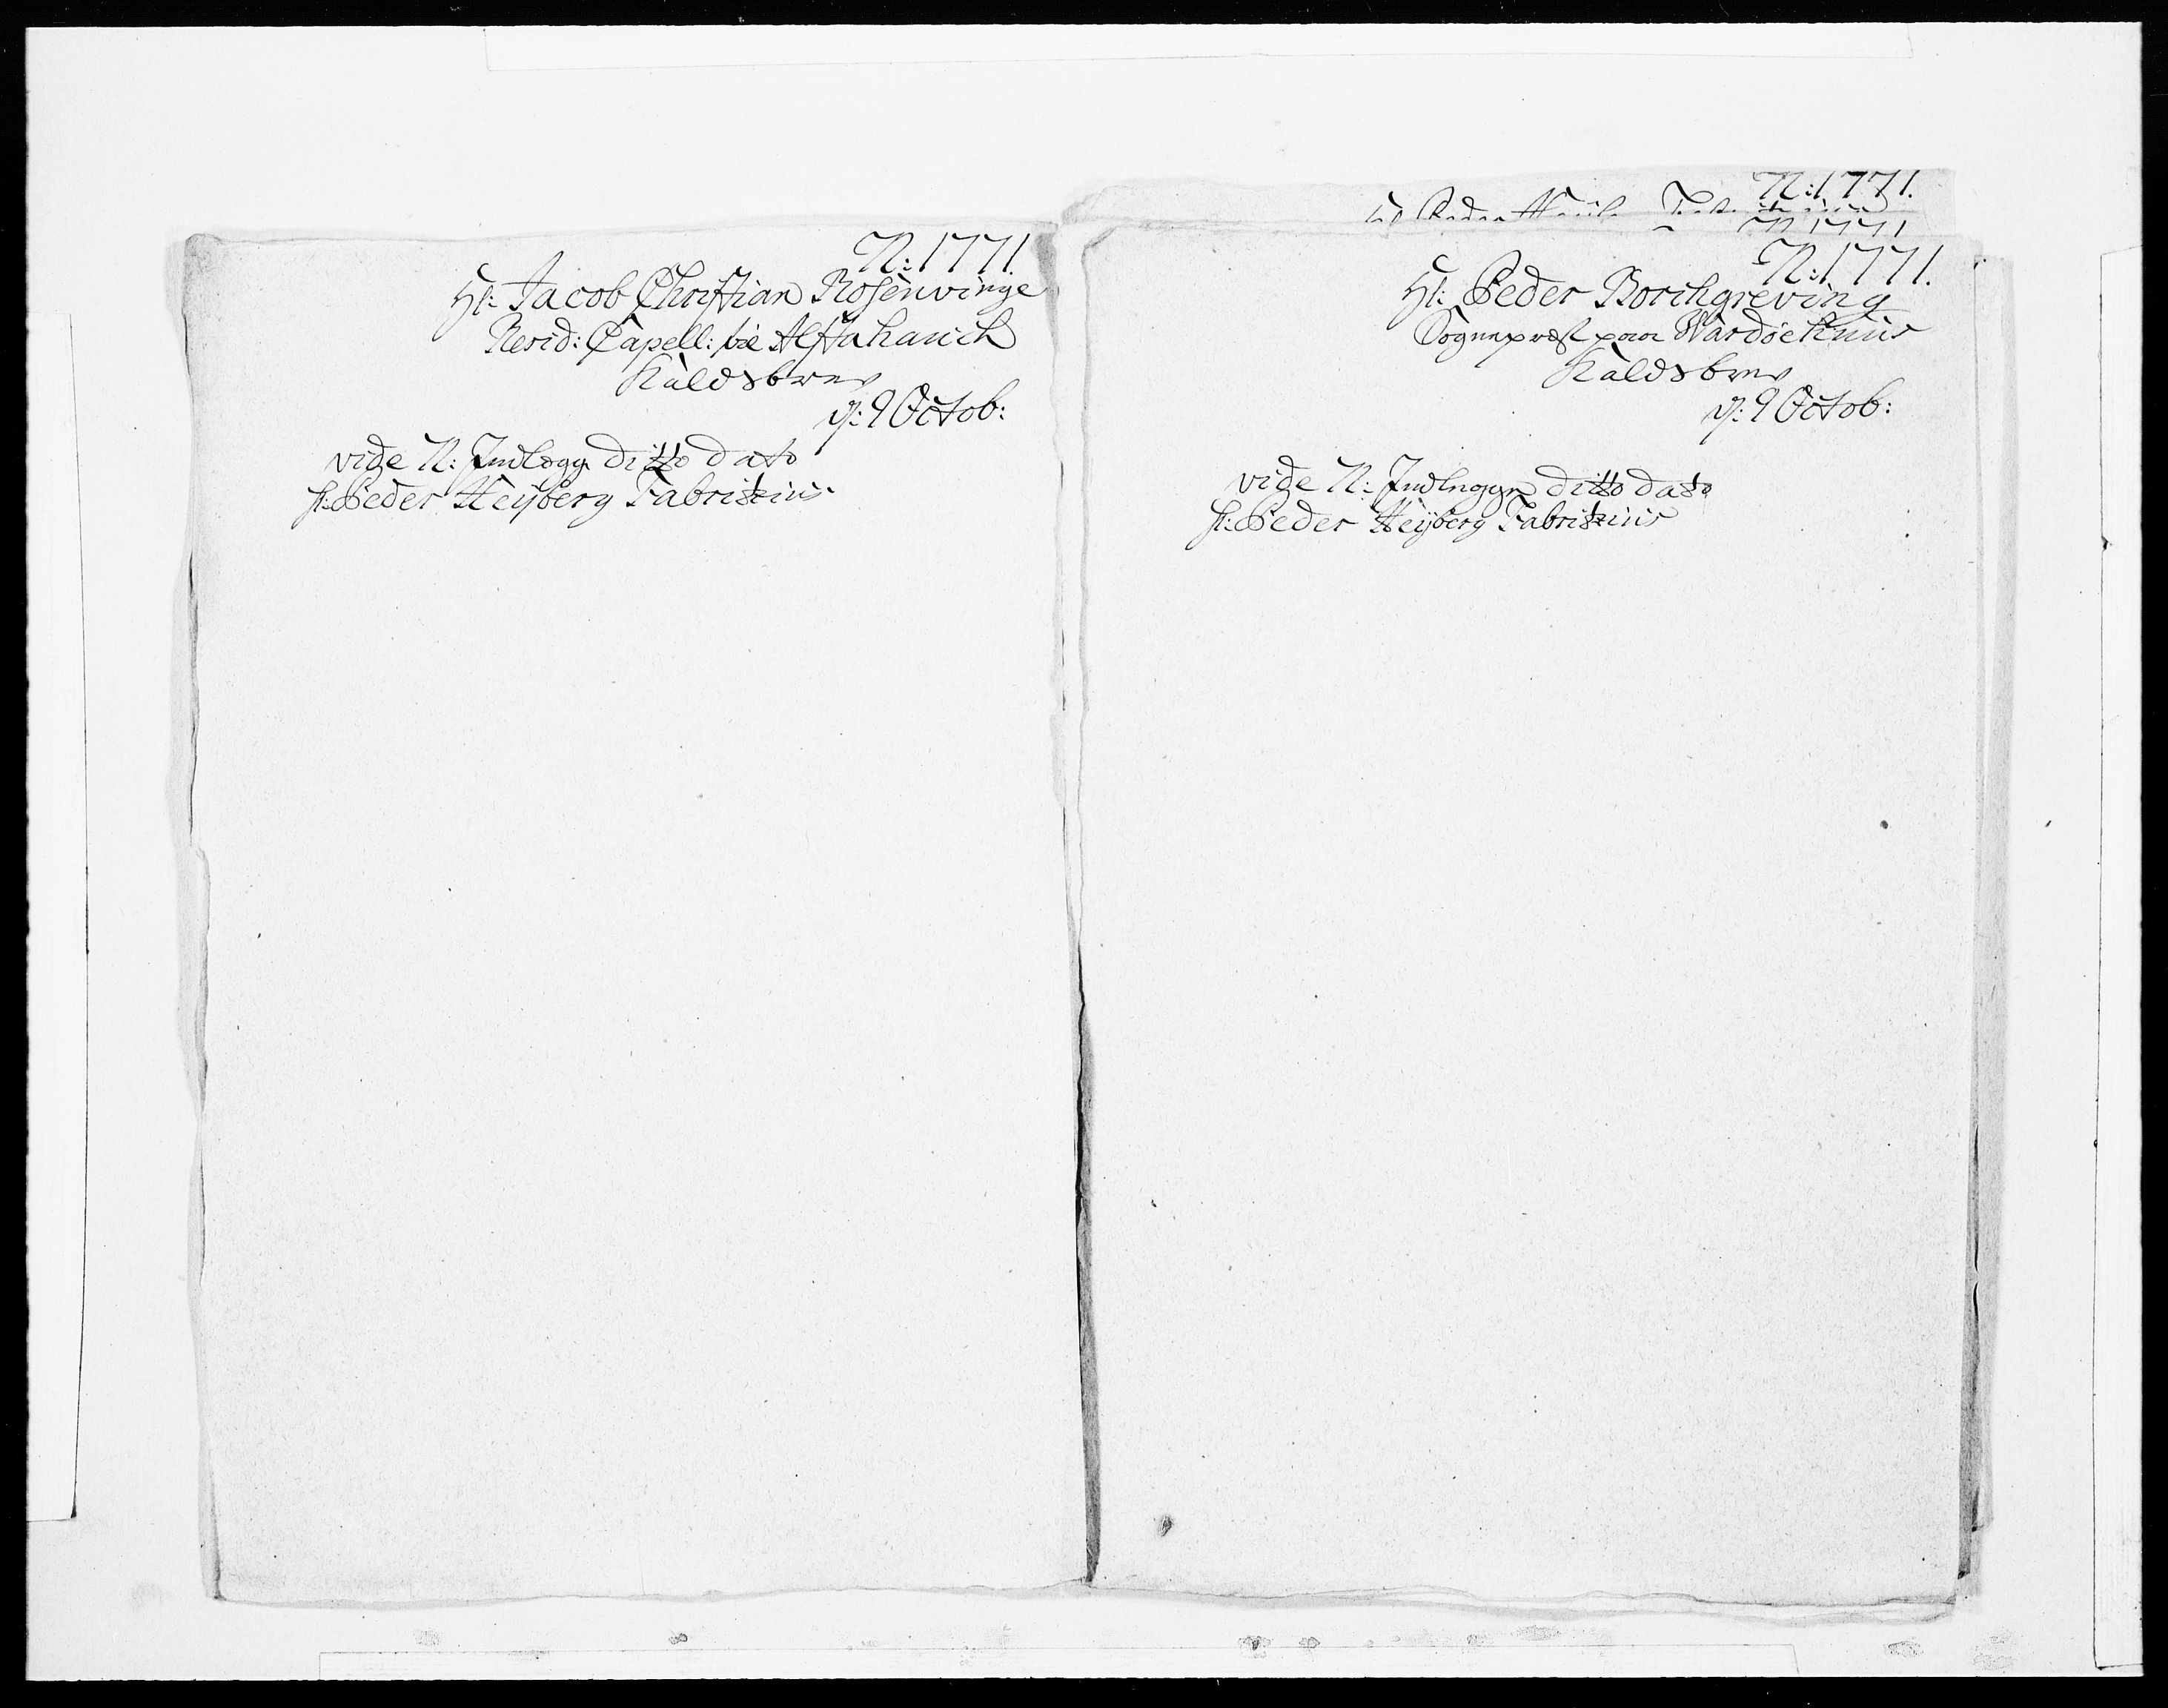 N: 1771.
Hr: Jacob Christian Rosenvinge
Resid: Capell: til Alstahaich
Kaldsbrev
d: 9 Octob:
vide N: Indlægg ditto dato
hr: Peder Heyberg Fabritzius
N: 1771.
N 1771
N: 1771.
Hr: Peder Borchgreving
Sognepræst paa Wardøehuus
Kaldsbrev
d: 9 Octob:
vide N: Indlegge ditto dato
hr: Peder Heyberg Fabritzius